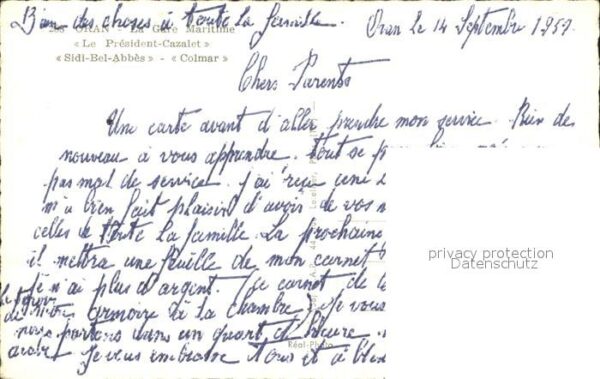 Bien des choses à toute la famille. Oran le 14 Septembre 1957.
298 ORAN - La Gare Maritime
« Le Président-Cazalet »
« Sidi-Bel-Abbès » - « Colmar »
Chers Parents
Une carte avant d'aller prendre mon service. Rien de
nouveau à vous apprendre. tout se
pas mal de service. J'ai reçu
m'a bien fait plaisir d'avoir de vos
celles de toute la famille. La prochaine
il mettra une feuille de mon carnet
je n'ai plus d'argent. (le carnet de
de mon armoire à la chambre) Je vous
nous partons dans un quart d'heure.
Je vous embrasse tous et à
Réal-Photo
privacy protection
Datenschutz